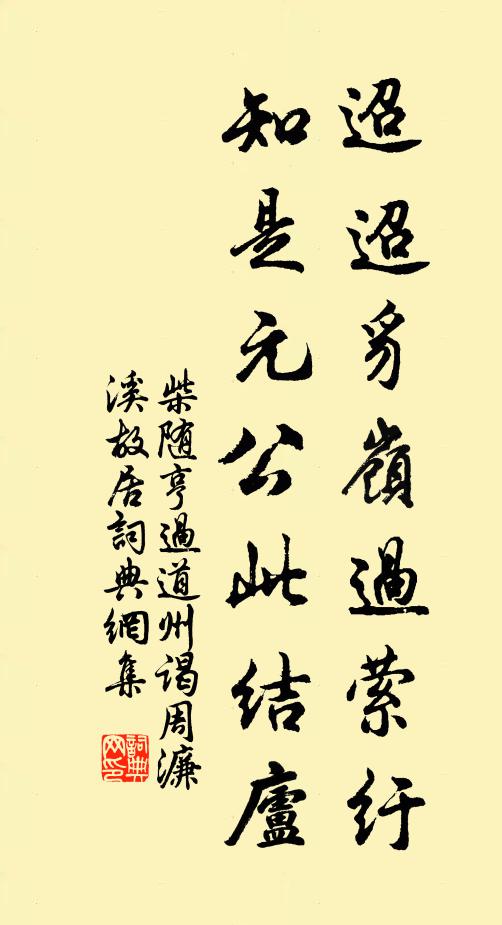 迢迢豸嶺過萦紆
知是元公此結廬
柴随亨過道州谒周濂
溪故居詞典網集
詞典
网印